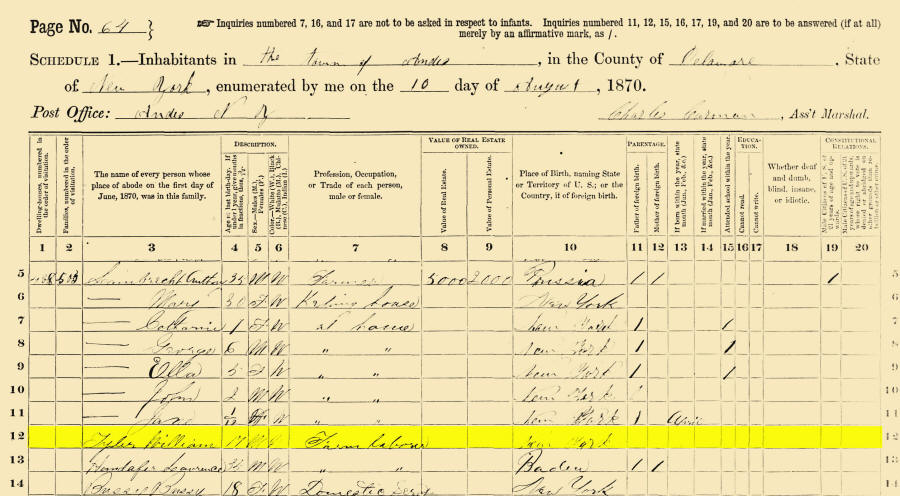 Page No. 64 }
☞ Inquiries numbered 7, 16, and 17 are not to be asked in respect to infants. Inquiries numbered 11, 12, 15, 16, 17, 19, and 20 are to be answered (if at all)
merely by an affirmative mark, as /.
SCHEDULE 1.—Inhabitants in the town of Andes, in the County of Delaware, State
of New York, enumerated by me on the 10 day of August, 1870.
Post Office: Andes N Y Charles, Ass't Marshal.
Dwelling-houses, numbered in the order of visitation.
Families, numbered in the order of visitation.
The name of every person whose place of abode on the first day of June, 1870, was in this family.
DESCRIPTION.
Age at last birth-day. If under 1 year, give months in fractions, thus,
Sex.—Males (M.), Females (F.)
Color.—White (W.), Black (B.), Mulatto (M.), Chinese (C.), Indian (I.)
Profession, Occupation, or Trade of each person, male or female.
VALUE OF REAL ESTATE OWNED.
Value of Real Estate.
Value of Personal Estate.
Place of Birth, naming State or Territory of U. S.; or the Country, if of foreign birth.
PARENTAGE.
Father of foreign birth.
Mother of foreign birth.
If born within the year, state month (Jan., Feb., &c.)
If married within the year, state month (Jan., Feb., &c.)
Attended school within the year.
EDUCATION.
Cannot read.
Cannot write.
Whether deaf and dumb, blind, insane, or idiotic.
CONSTITUTIONAL RELATIONS.
Male Citizens of U. S. of 21 years of age and upwards.
1 2 3 4 5 6 7 8 9 10 11 12 13 14 15 16 17 18 19 20
5 35 M W Farmer 5000 2000 Prussia / / / 5
6 — Mary 30 F W house New York 6
7 — 1 F W at home New York / / 7
8 — George 6 M W " " New York / / 8
9 — Ella 5 F W " " New York / / 9
10 — John 2 M W " " New York / 10
11 — Jane 1/12 W " " New York / April 11
12 Tyler William 17 Farm labour New York 12
13 Lawrence M W " " Baden / / 13
14 Bussy 18 F W Domestic New York 14